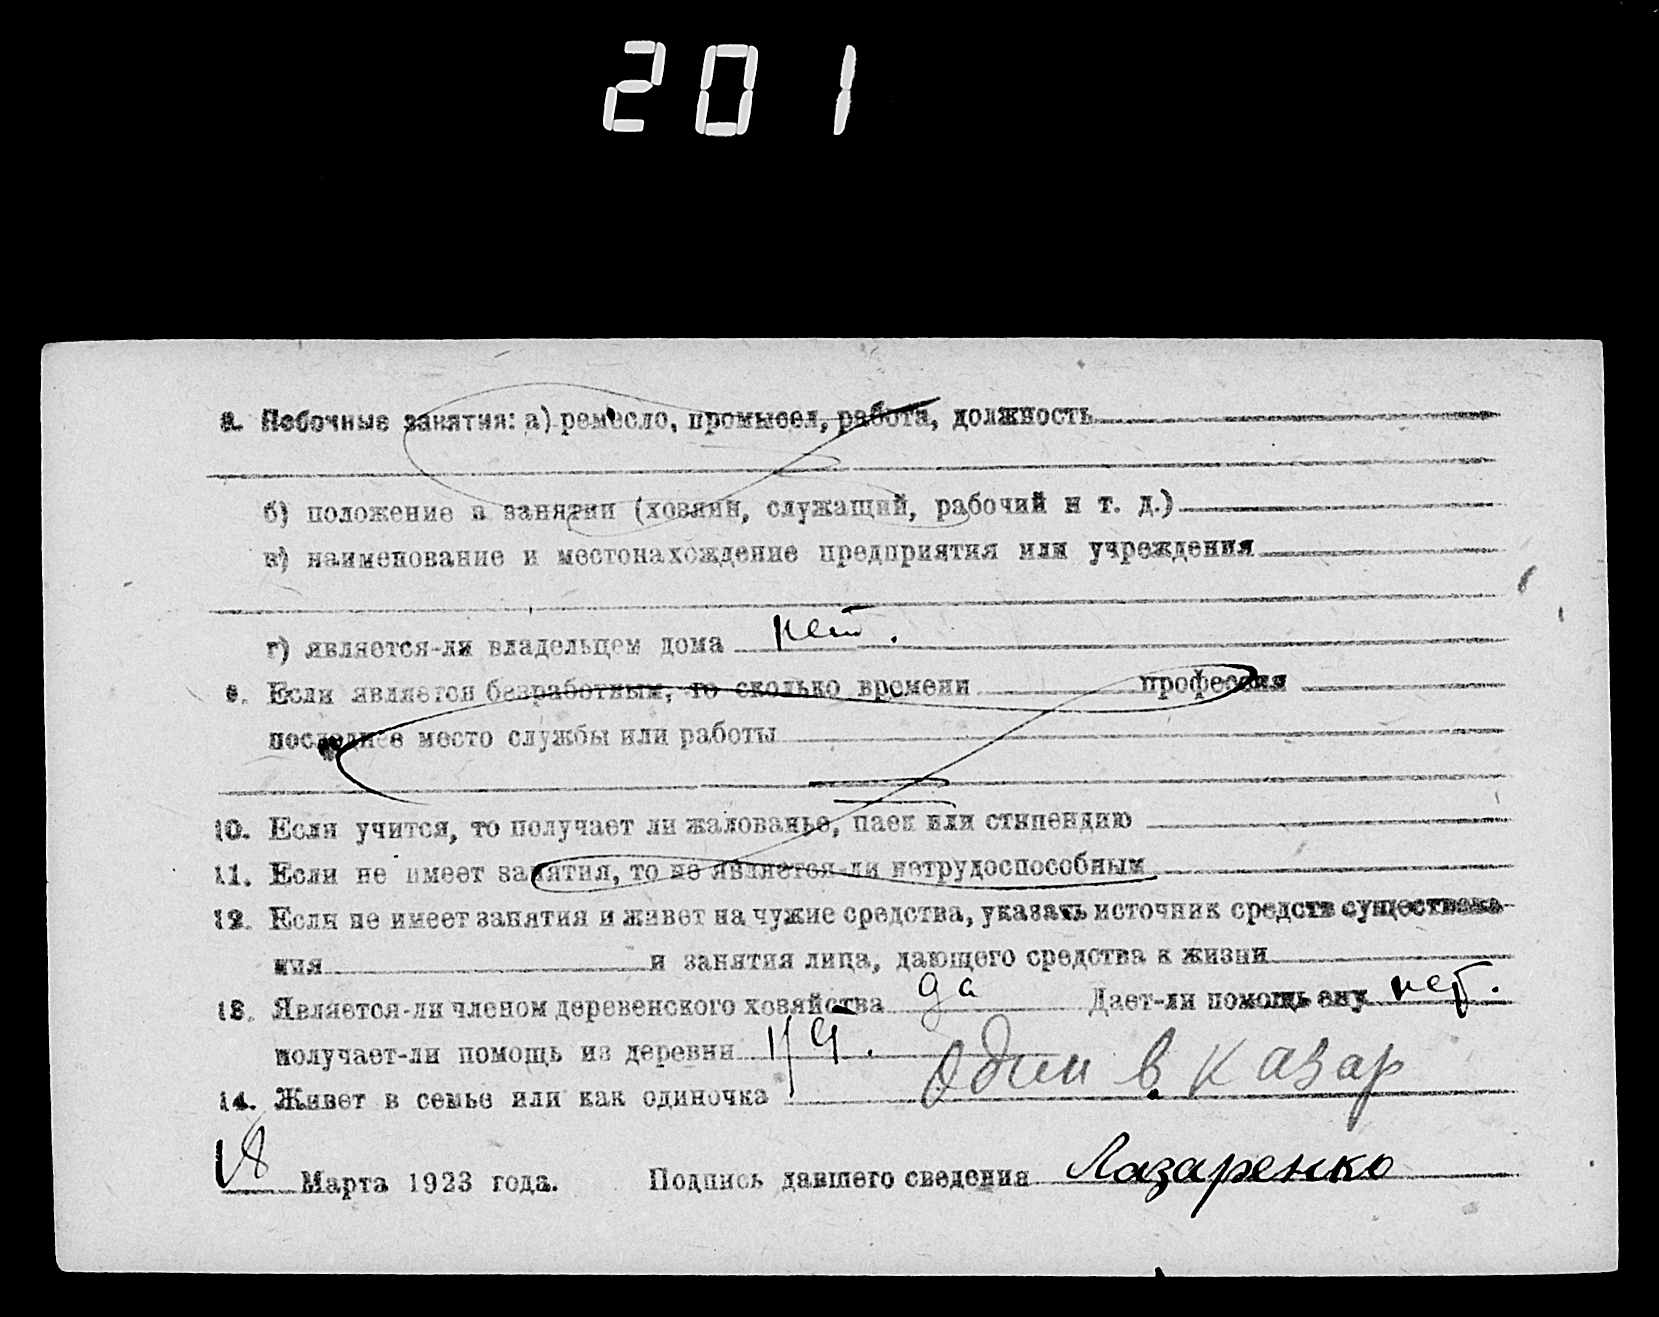 201
8. Побочные занятия: а) ремесло, промысел, работа, должность
б) положение в занятии (хозяин, служащий, рабочий и т. д.)
в) наименование и местонахождение предприятия или учреждения
г) является-ли владельцем дома нет.
9. Если является безработным, то сколько времени профессия
последнее место службы или работы
10. Если учится, то получает ли жалованье, паек или стипендию
11. Если не имеет занятия, то не является-ли нетрудоспособным
12. Если не имеет занятия и живет на чужие средства, указать источник средств существова-
ния и занятия лица, дающего средства к жизни
13. Является-ли членом деревенского хозяйства да Дает-ли помощь ему нет.
получает-ли помощь из деревни нет.
14. Живет в семье или как одиночка Один в казар
18 Марта 1923 года. Подпись давшего сведения Лазаренко